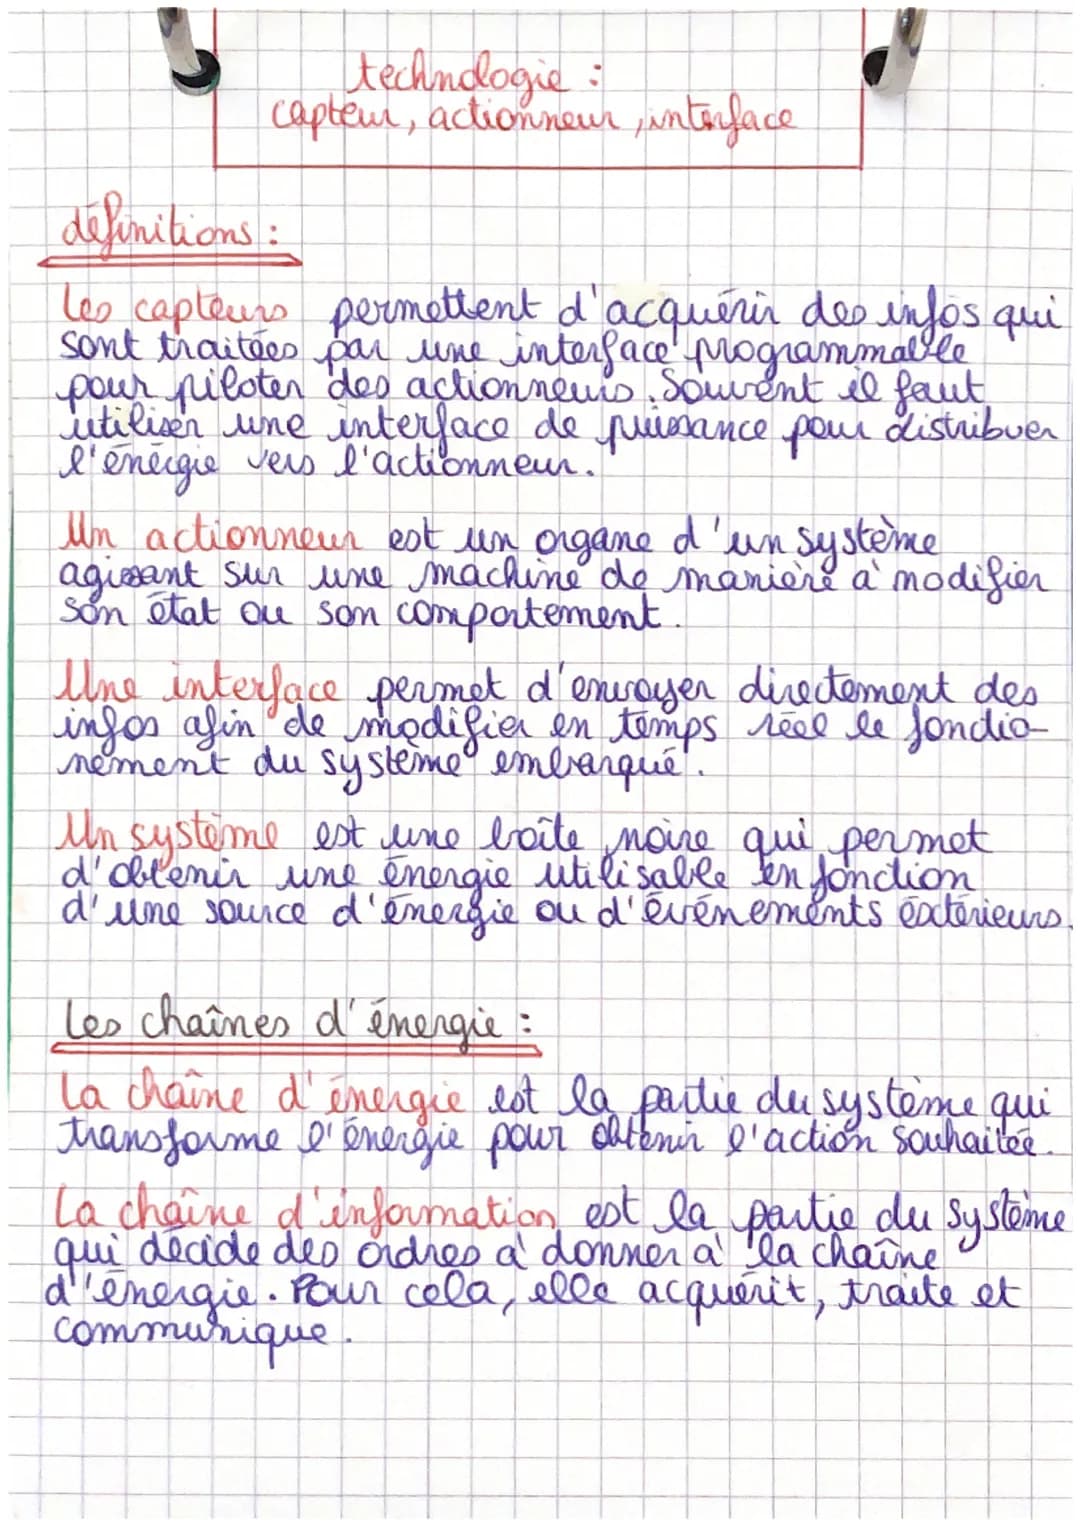 technologie :
capteur, actionneur, interface
définitions :
Les capteurs permettent d'acquérir des infos qui
sont traitées par une interface programmable
pour piloter des actionneurs. Souvent il faut
utiliser une interface de puissance pour distribuer
l'énergie vers l'actionneur.
Un actionneur est un organe d'un système
agissant sur une machine de manière à modifier
son état ou son comportement.
Une interface permet d'envoyer directement des
infos afin de modifier en temps réel le fonctio-
nement du système embarqué.
Un système est une boîte noire qui permet
d'obtenir une énergie utilisable en fonction
d'une source d'énergie ou d'événements éxtérieurs.
Les chaînes d'énergie :
La chaîne d'énergie est la partie du système qui
transforme l'énergie pour obtenir l'action souhaitée.
La chaîne d'information est la partie du système
qui décide des ordres à donner à la chaîne
d'énergie. Pour cela, elle acquérit, traite et
communique.